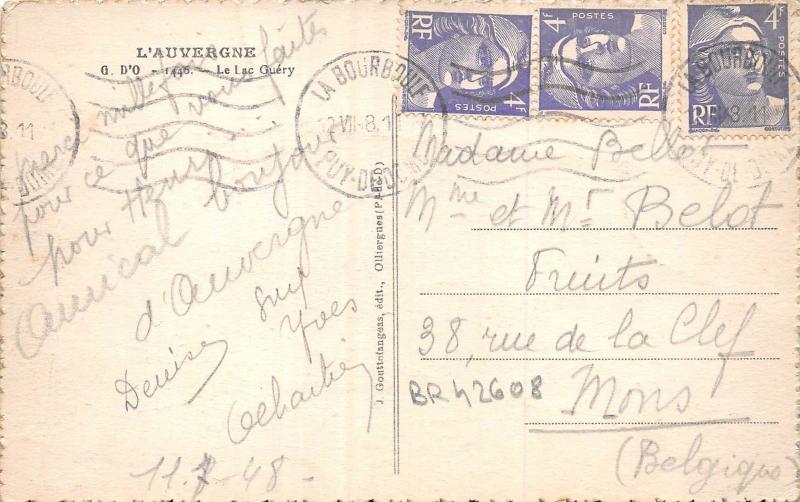 L'AUVERGNE
G. D'O - 1446. - Le Lac Guéry
Merci mille fois
pour ce que vous faites
pour Henri ...
Amical bonjour
d'Auvergne
Suzy
Denise Yves
11.7-48-
J. Gouttefangeas, édit., Olliergues (P.-DE-D)
RF POSTES 4F
4F POSTES RF
4F RF
LA BOURBOULE
PUY-DE-DÔME
Madame Bellot
Mme et Mr Belot
Fruits
38, rue de la Clef
BR42608
Mons
(Belgique)